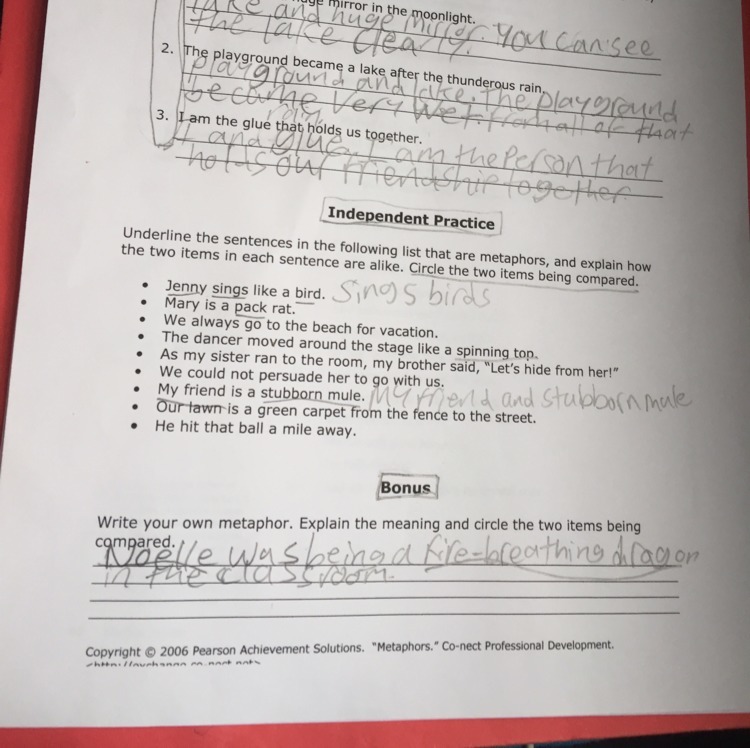 huge mirror in the moonlight.
lake and huge mirror. You can see
the lake clearly.
2. The playground became a lake after the thunderous rain.
playground and lake. The playground
became very wet from all of that
rain.
3. I am the glue that holds us together.
I and glue. I am the Person that
holds our friendship together.
Independent Practice
Underline the sentences in the following list that are metaphors, and explain how
the two items in each sentence are alike. Circle the two items being compared.
• Jenny sings like a bird. Sings birds
• Mary is a pack rat.
• We always go to the beach for vacation.
• The dancer moved around the stage like a spinning top.
• As my sister ran to the room, my brother said, "Let's hide from her!"
• We could not persuade her to go with us.
• My friend is a stubborn mule. My friend and stubborn mule
• Our lawn is a green carpet from the fence to the street.
• He hit that ball a mile away.
Bonus
Write your own metaphor. Explain the meaning and circle the two items being
compared.
Noelle was being a fire-breathing dragon
in the classroom.
Copyright © 2006 Pearson Achievement Solutions. "Metaphors." Co-nect Professional Development.